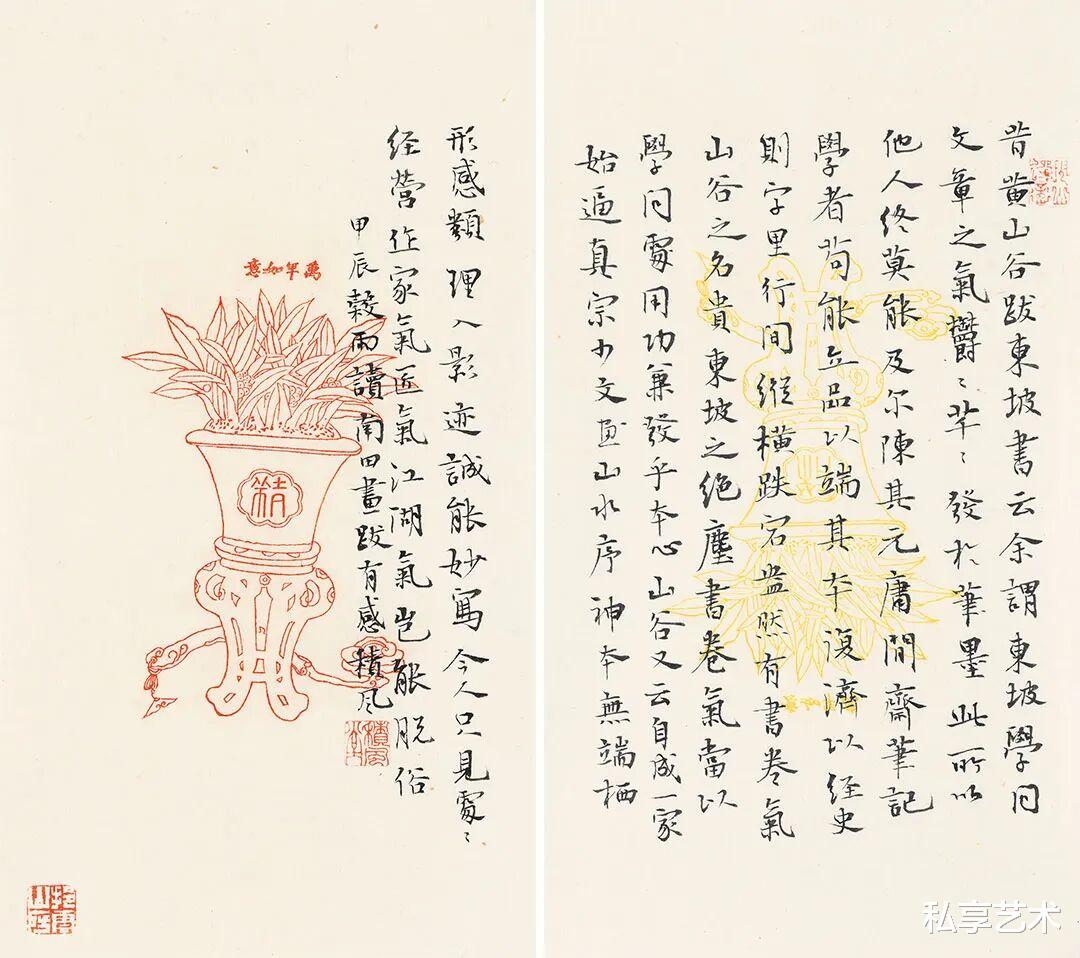 昔黄山谷跋東坡書云余謂東坡學问
文章之氣欝〻芊〻發扵筆墨此所以
他人终莫能及尔陳其元庸閒齋筆記
學者茍能立品以端其本復濟以经史
則字里行间縱横跌宕盎然有書卷氣
山谷之名贵東坡之绝塵書卷氣當以
學问處用功兼發乎本心山谷又云自成一家
始逼真宗少文画山水序神本無端栖
形感類理入影迹誠能妙寫今人只見處〻
经营作家氣匠氣江湖氣岂能脱俗
甲辰穀雨讀南田畫跋有感積风
萬年如意
私享艺术